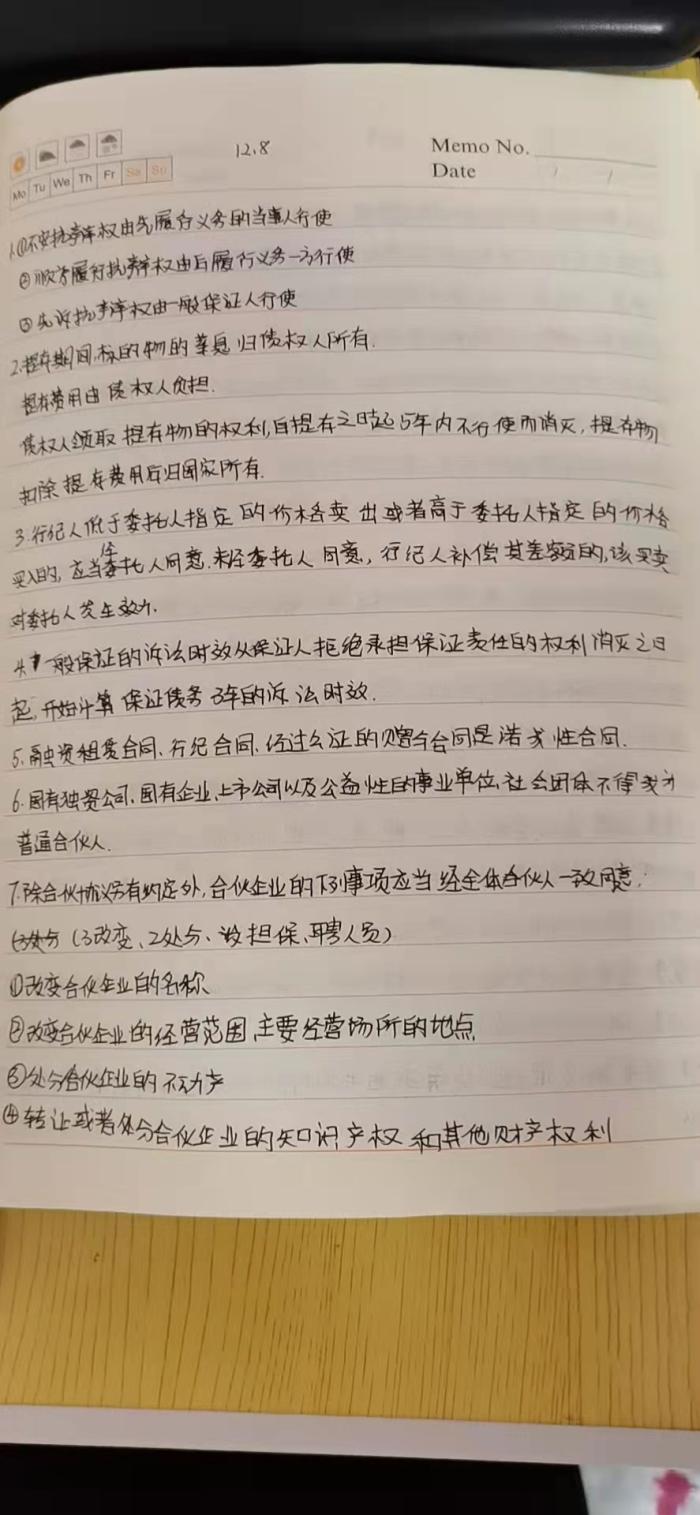 12.8
Memo No.
Date / /
Mo Tu We Th Fr Sa Su
1.①不安抗辩权由先履行义务的当事人行使
②顺序履行抗辩权由后履行义务一方行使
③先诉抗辩权由一般保证人行使
2.提存期间,标的物的孳息归债权人所有.
提存费用由债权人负担.
债权人领取提存物的权利,自提存之日起5年内不行使而消灭,提存物
扣除提存费用后归国家所有.
3.行纪人低于委托人指定的价格卖出或者高于委托人指定的价格
买入的,应当经委托人同意.未经委托人同意,行纪人补偿其差额的,该买卖
对委托人发生效力.
4.一般保证的诉讼时效从保证人拒绝承担保证责任的权利消灭之日
起,开始计算保证债务3年的诉讼时效.
5.融资租赁合同、行纪合同、经过公证的赠与合同是诺成性合同.
6.国有独资公司、国有企业、上市公司以及公益性的事业单位、社会团体不得成为
普通合伙人.
7.除合伙协议另有约定外,合伙企业的下列事项应当经全体合伙人一致同意:
(3改变、2处分、为担保、聘人员)
①改变合伙企业的名称
②改变合伙企业的经营范围、主要经营场所的地点
③处分合伙企业的不动产
④转让或者处分合伙企业的知识产权和其他财产权利